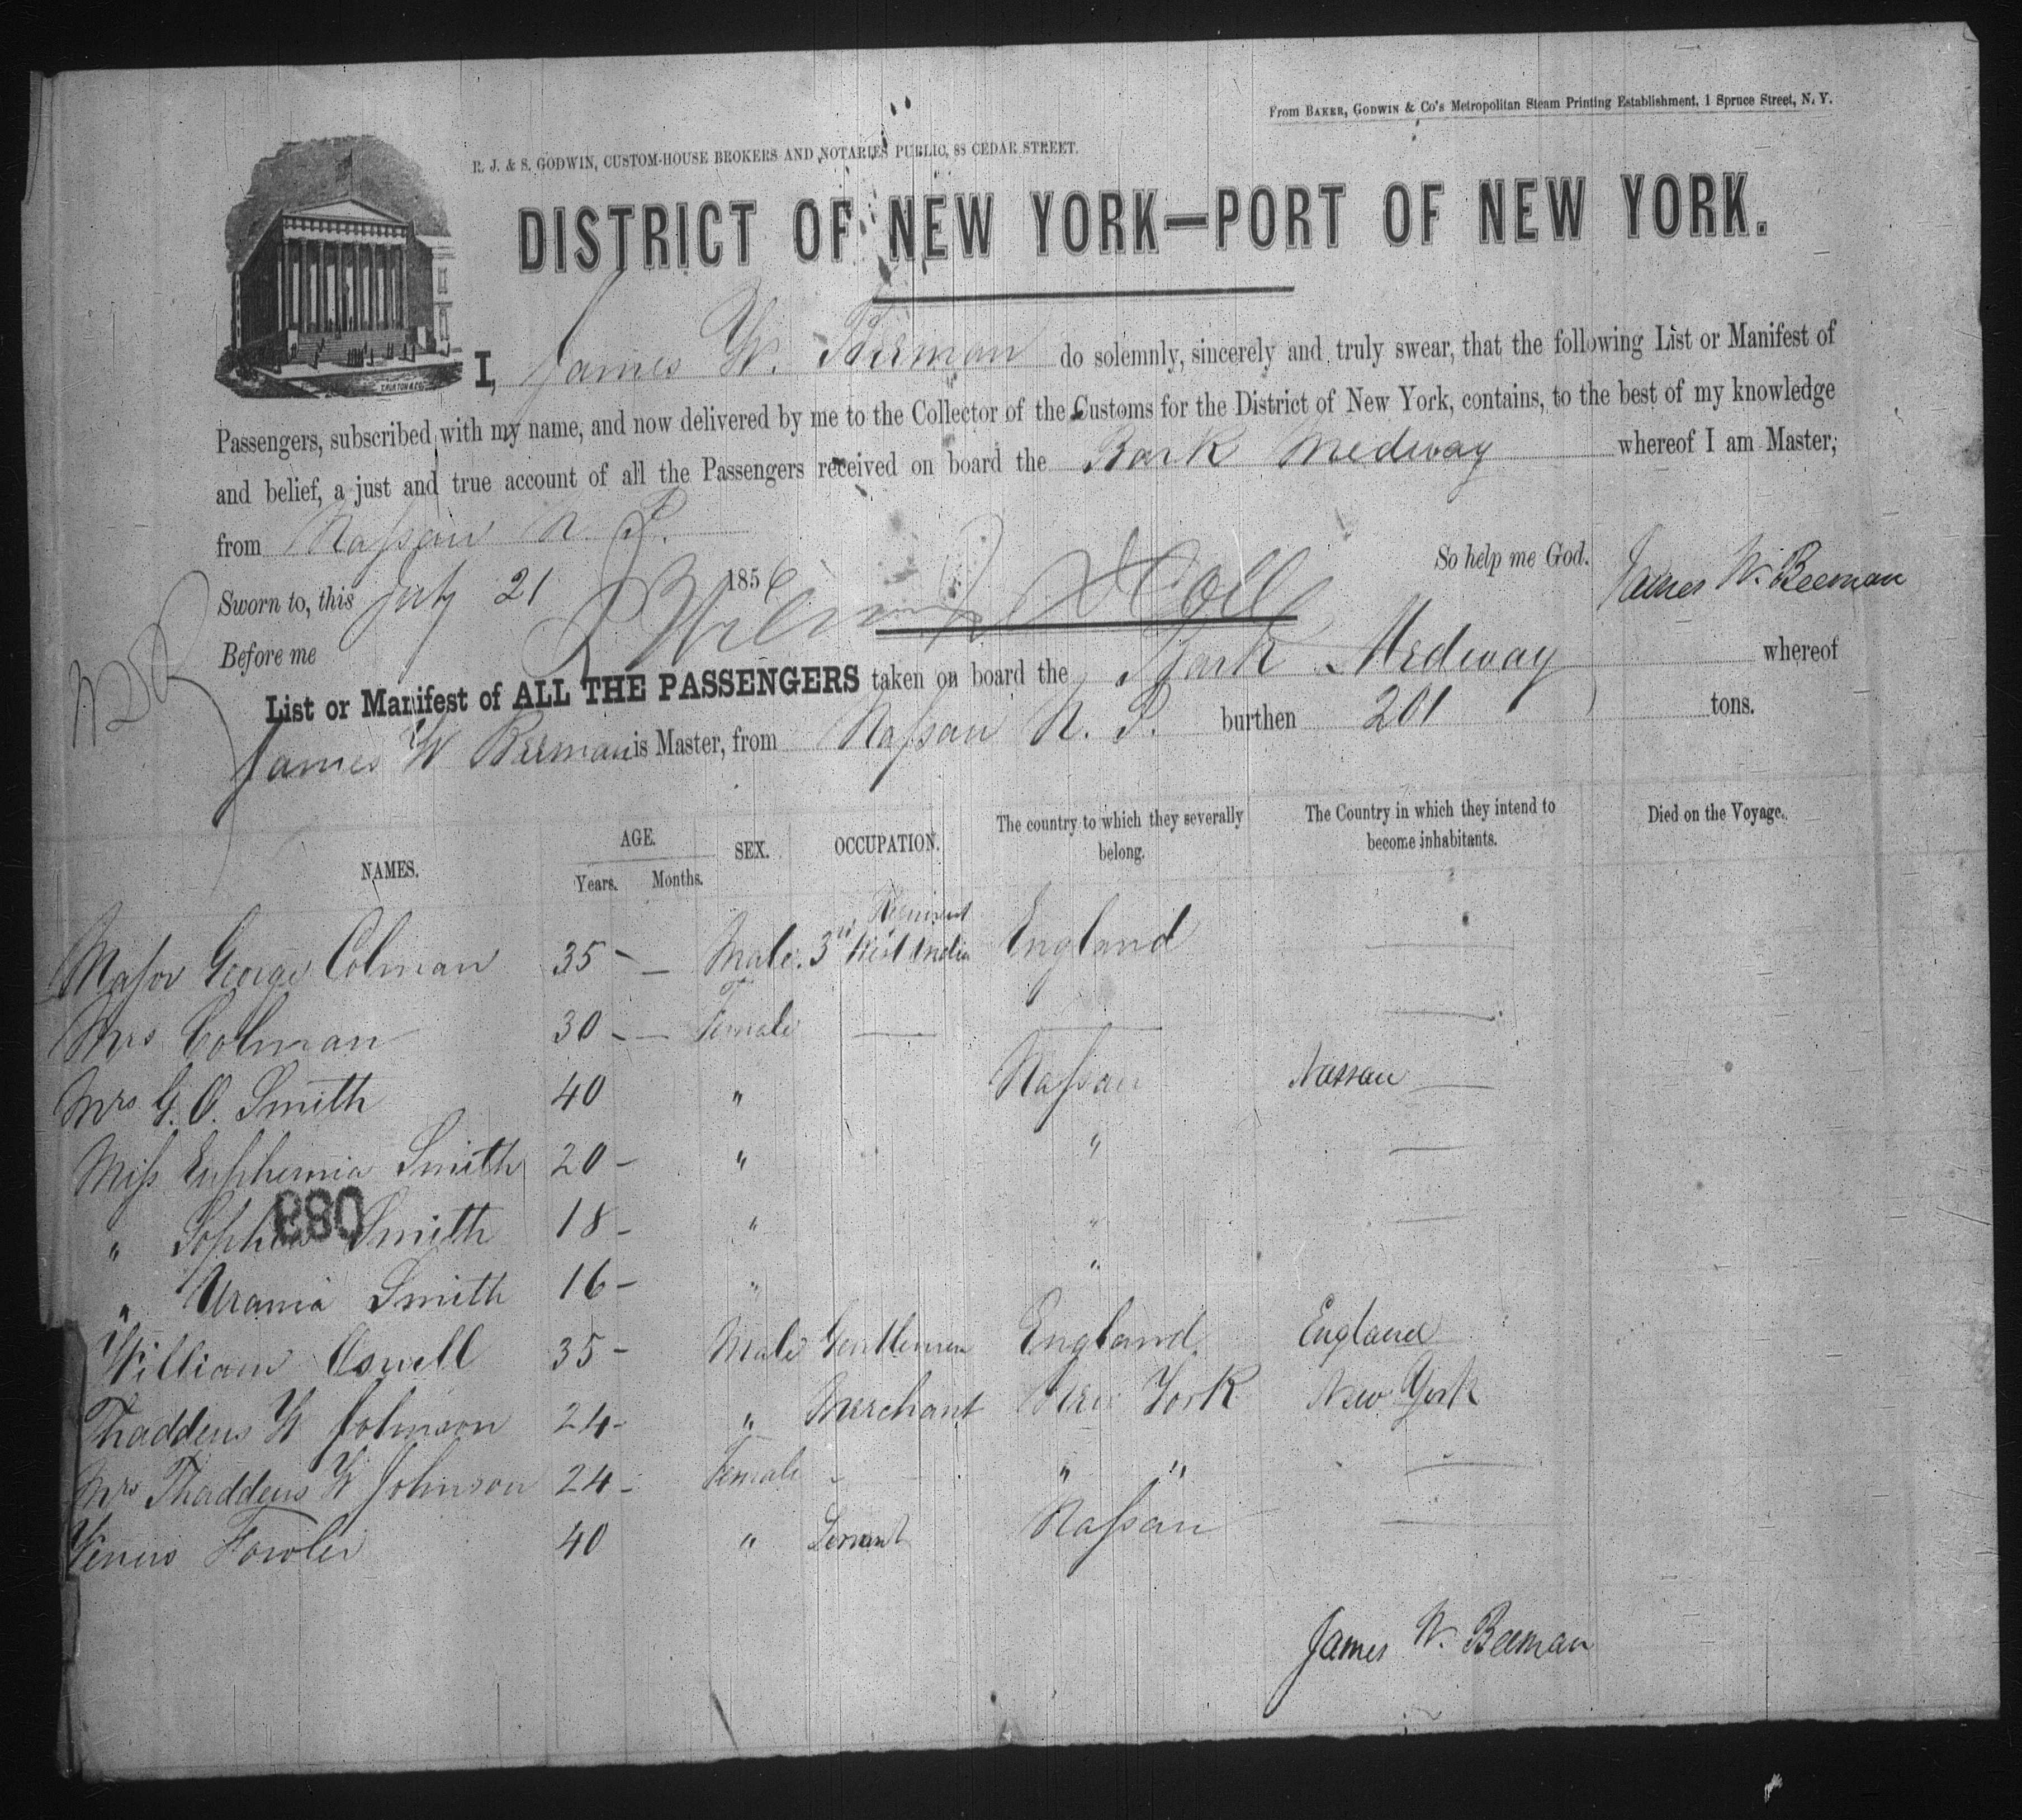 From BAKER, GODWIN & Co's Metropolitan Steam Printing Establishment, 1 Spruce Street, N. Y.
R. J. & S. GODWIN, CUSTOM-HOUSE BROKERS AND NOTARIES PUBLIC, 88 CEDAR STREET.
DISTRICT OF NEW YORK—PORT OF NEW YORK.
I, James W. Beeman do solemnly, sincerely and truly swear, that the following List or Manifest of
Passengers, subscribed with my name, and now delivered by me to the Collector of the Customs for the District of New York, contains, to the best of my knowledge
and belief, a just and true account of all the Passengers received on board the Bark Medway whereof I am Master,
from Nassau N. P.
So help me God. James W. Beeman
Sworn to, this July 21 1856
Before me
List or Manifest of ALL THE PASSENGERS taken on board the Bark Medway whereof
James W Beeman is Master, from Nassau N. P. burthen 201 tons.
NAMES. AGE. Years. Months. SEX. OCCUPATION. The country to which they severally belong. The Country in which they intend to become inhabitants. Died on the Voyage.
Major George Colman 35 — Male. 3rd West India Regiment England —
Mrs Colman 30 — Female — — —
Mrs G. O. Smith 40 " Nassau Nassau —
Miss Euphemia Smith 20 - " " —
" Sophia Smith 18 - " " —
" Urania Smith 16 - " "
William Oswell 35 - Male Gentleman England England
Thaddeus W Johnson 24 - " Merchant New York New York
Mrs Thaddeus W Johnson 24 - Female - " " —
Venus Fowler 40 " Servant Nassau —
James W. Beeman